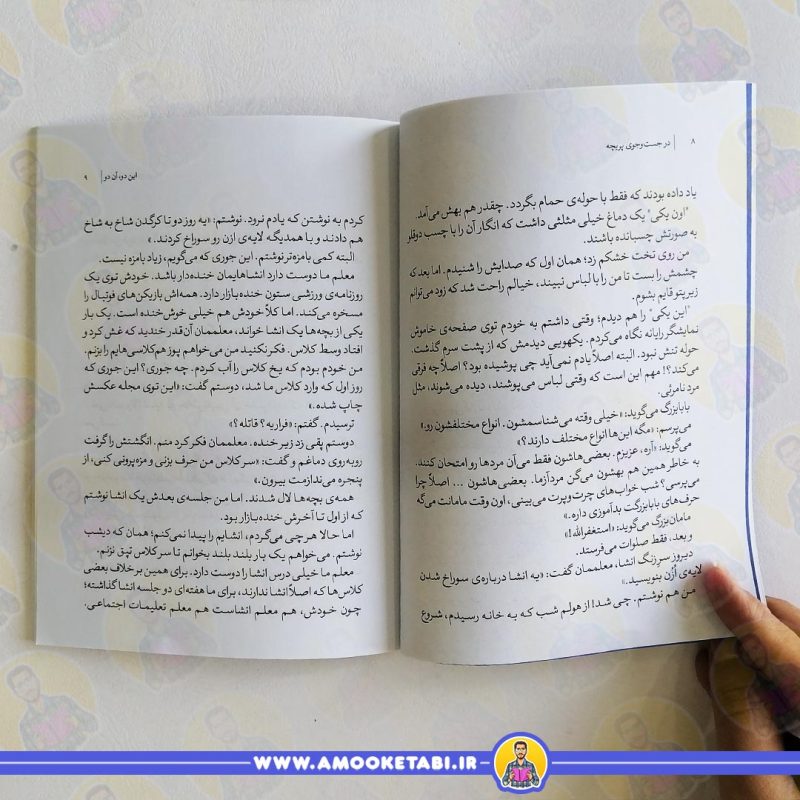 ۸ | در جست‌وجوی پریچه
یاد داده بودند که فقط با حوله‌ی حمام بگردد. چقدر هم بهش می‌آمد.
"اون یکی" یک دماغ خیلی مثلثی داشت که انگار آن را با چسب دوقلو
به صورتش چسبانده باشند.
من روی تخت خشکم زد؛ همان اول که صدایش را شنیدم. اما بعد که
چشمش را بست تا من را با لباس نبیند، خیالم راحت شد که زود می‌توانم
زیر پتو قایم بشوم.
"این یکی" را هم دیدم؛ وقتی داشتم به خودم توی صفحه‌ی خاموش
نمایشگر رایانه نگاه می‌کردم. یکهویی دیدمش که از پشت سرم گذشت.
حوله تنش نبود. البته اصلاً یادم نمی‌آید چی پوشیده بود؟ اصلاً چه فرقی
می‌کند؟! مهم این است که وقتی لباس می‌پوشند، دیده می‌شوند، مثل
مرد نامرئی.
بابابزرگ می‌گوید: «خیلی وقته می‌شناسمشون. انواع مختلفشون رو.»
می‌پرسم: «مگه این‌ها انواع مختلف دارند؟»
می‌گوید: «آره، عزیزم. بعضی‌هاشون فقط می‌آن مردها رو امتحان کنند.
به خاطر همین هم بهشون می‌گن مردآزما. بعضی‌هاشون ... اصلاً چرا
می‌پرسی؟ شب خواب‌های چرت‌وپرت می‌بینی، اون وقت مامانت می‌گه
حرف‌های بابابزرگت بدآموزی داره.»
مامان‌بزرگ می‌گوید: «استغفرالله!»
و بعد، فقط صلوات می‌فرستد.
دیروز سر زنگ انشا، معلممان گفت: «یه انشا درباره‌ی سوراخ شدن
لایه‌ی اُزُن بنویسید.»
من هم نوشتم. چی شد! از هولم شب که به خانه رسیدم، شروع
این دو، آن دو | ۹
کردم به نوشتن که یادم نرود. نوشتم: «یه روز دو تا کرگدن شاخ به شاخ
هم دادند و با همدیگه لایه‌ی ازن رو سوراخ کردند.»
البته کمی بامزه‌تر نوشتم. این جوری که می‌گویم، زیاد بامزه نیست.
معلم ما دوست دارد انشاهایمان خنده‌دار باشد. خودش توی یک
روزنامه‌ی ورزشی ستون خنده‌بازار دارد. همه‌اش بازیکن‌های فوتبال را
مسخره می‌کند. اما کلاً خودش هم خیلی خوش‌خنده است. یک بار
یکی از بچه‌ها یک انشا خواند، معلممان آن‌قدر خندید که غش کرد و
افتاد وسط کلاس. فکر نکنید من می‌خواهم پوز هم‌کلاسی‌هایم را بزنم.
من خودم بودم که یخ کلاس را آب کردم. چه جوری؟ این جوری که
روز اول که وارد کلاس ما شد، دوستم گفت: «این توی مجله عکسش
چاپ شده.»
ترسیدم. گفتم: «فراریه؟ قاتله؟»
دوستم پقی زد زیر خنده. معلممان فکر کرد منم. انگشتش را گرفت
روبه‌روی دماغم و گفت: «سر کلاس من حرف بزنی و مزه‌پرونی کنی، از
پنجره می‌ندازمت بیرون.»
همه‌ی بچه‌ها لال شدند. اما من جلسه‌ی بعدش یک انشا نوشتم
که از اول تا آخرش خنده‌بازار بود.
اما حالا هر چی می‌گردم، انشایم را پیدا نمی‌کنم؛ همان که دیشب
نوشتم. می‌خواهم یک بار بلند بلند بخوانم تا سر کلاس تپق نزنم.
معلم ما خیلی درس انشا را دوست دارد. برای همین بر خلاف بعضی
کلاس‌ها که اصلاً انشا ندارند، برای ما هفته‌ای دو جلسه انشا گذاشته؛
چون خودش، هم معلم انشاست هم معلم تعلیمات اجتماعی.
WWW.AMOOKETABI.IR